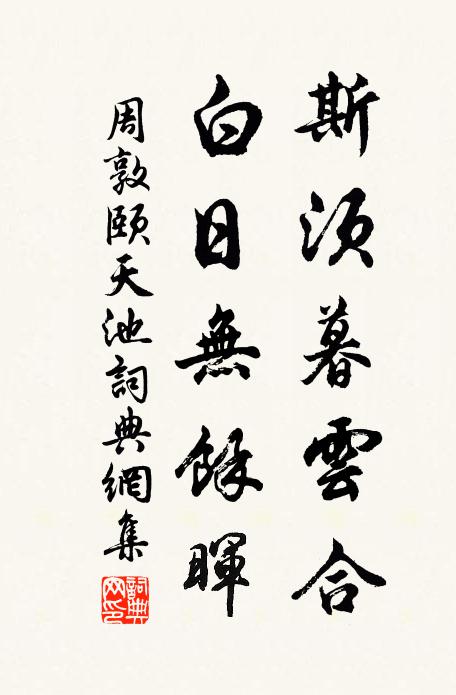 斯須暮雲合
白日無餘暉
周敦頤天池詞典網集
詞典網印